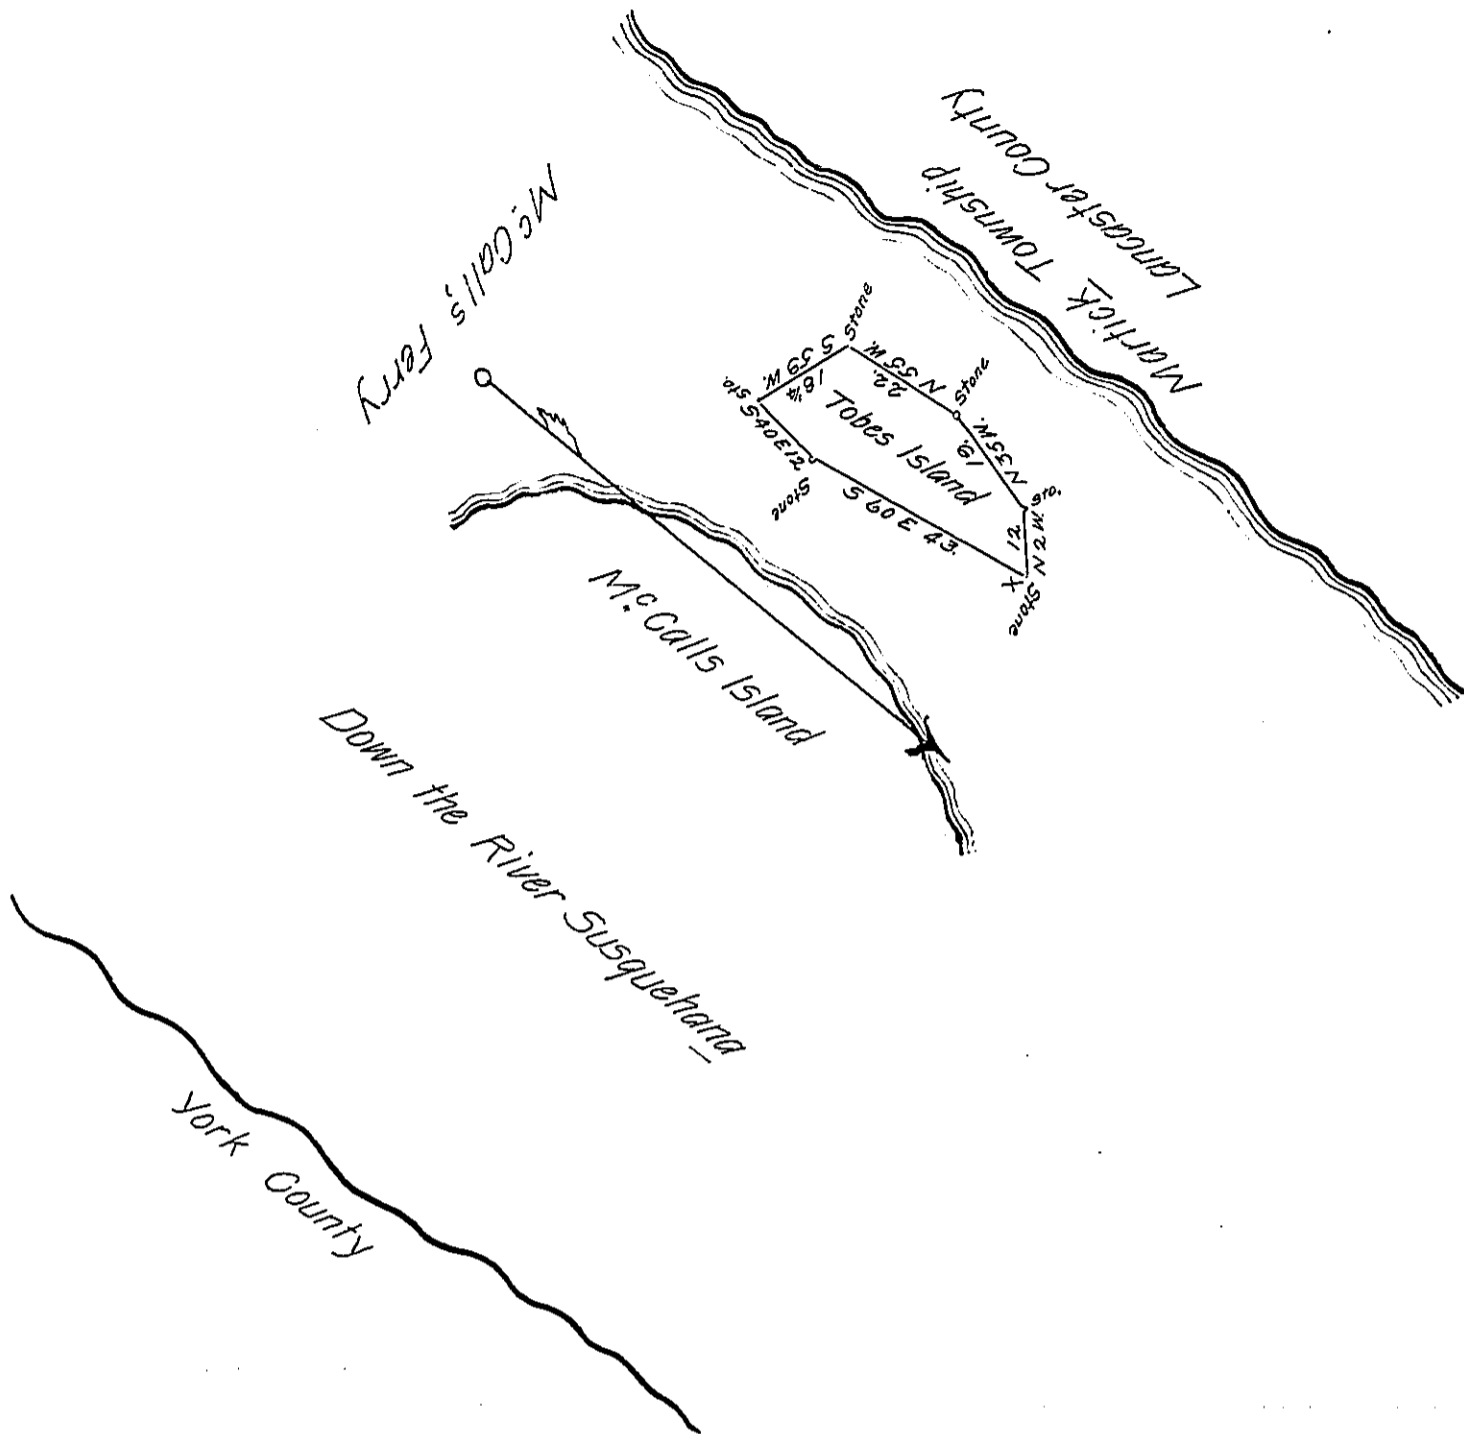 Martick Township
Lancaster County
McCalls, Ferry
Stone
S 59 W.
18¼
N 55 W.
22.
Stone
N 35 W.
19.
Sto.
N 2 W.
12
X
Stone
S 60 E 43.
Stone
S 40 E 12
Sto.
Tobes Island
McCalls Island
Down the River Susquehana
York County